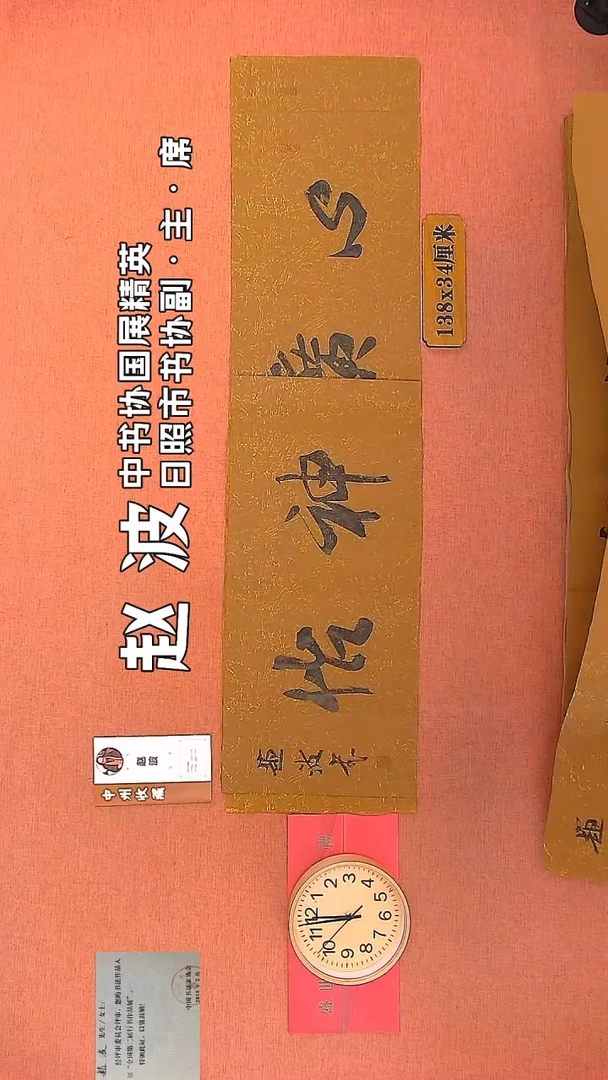 中书协国展精英
赵波 日照市书协副·主·席
赵波
中州收藏
先生/女士:
经评审委员会评审,您的书法作品入
“全国第二届行书作品展”,
特颁此证,以资鼓励!
中国书法家协会
心曠神怡
趙波书
138x34厘米
盛世
12
1
2
3
4
5
6
7
8
9
10
11